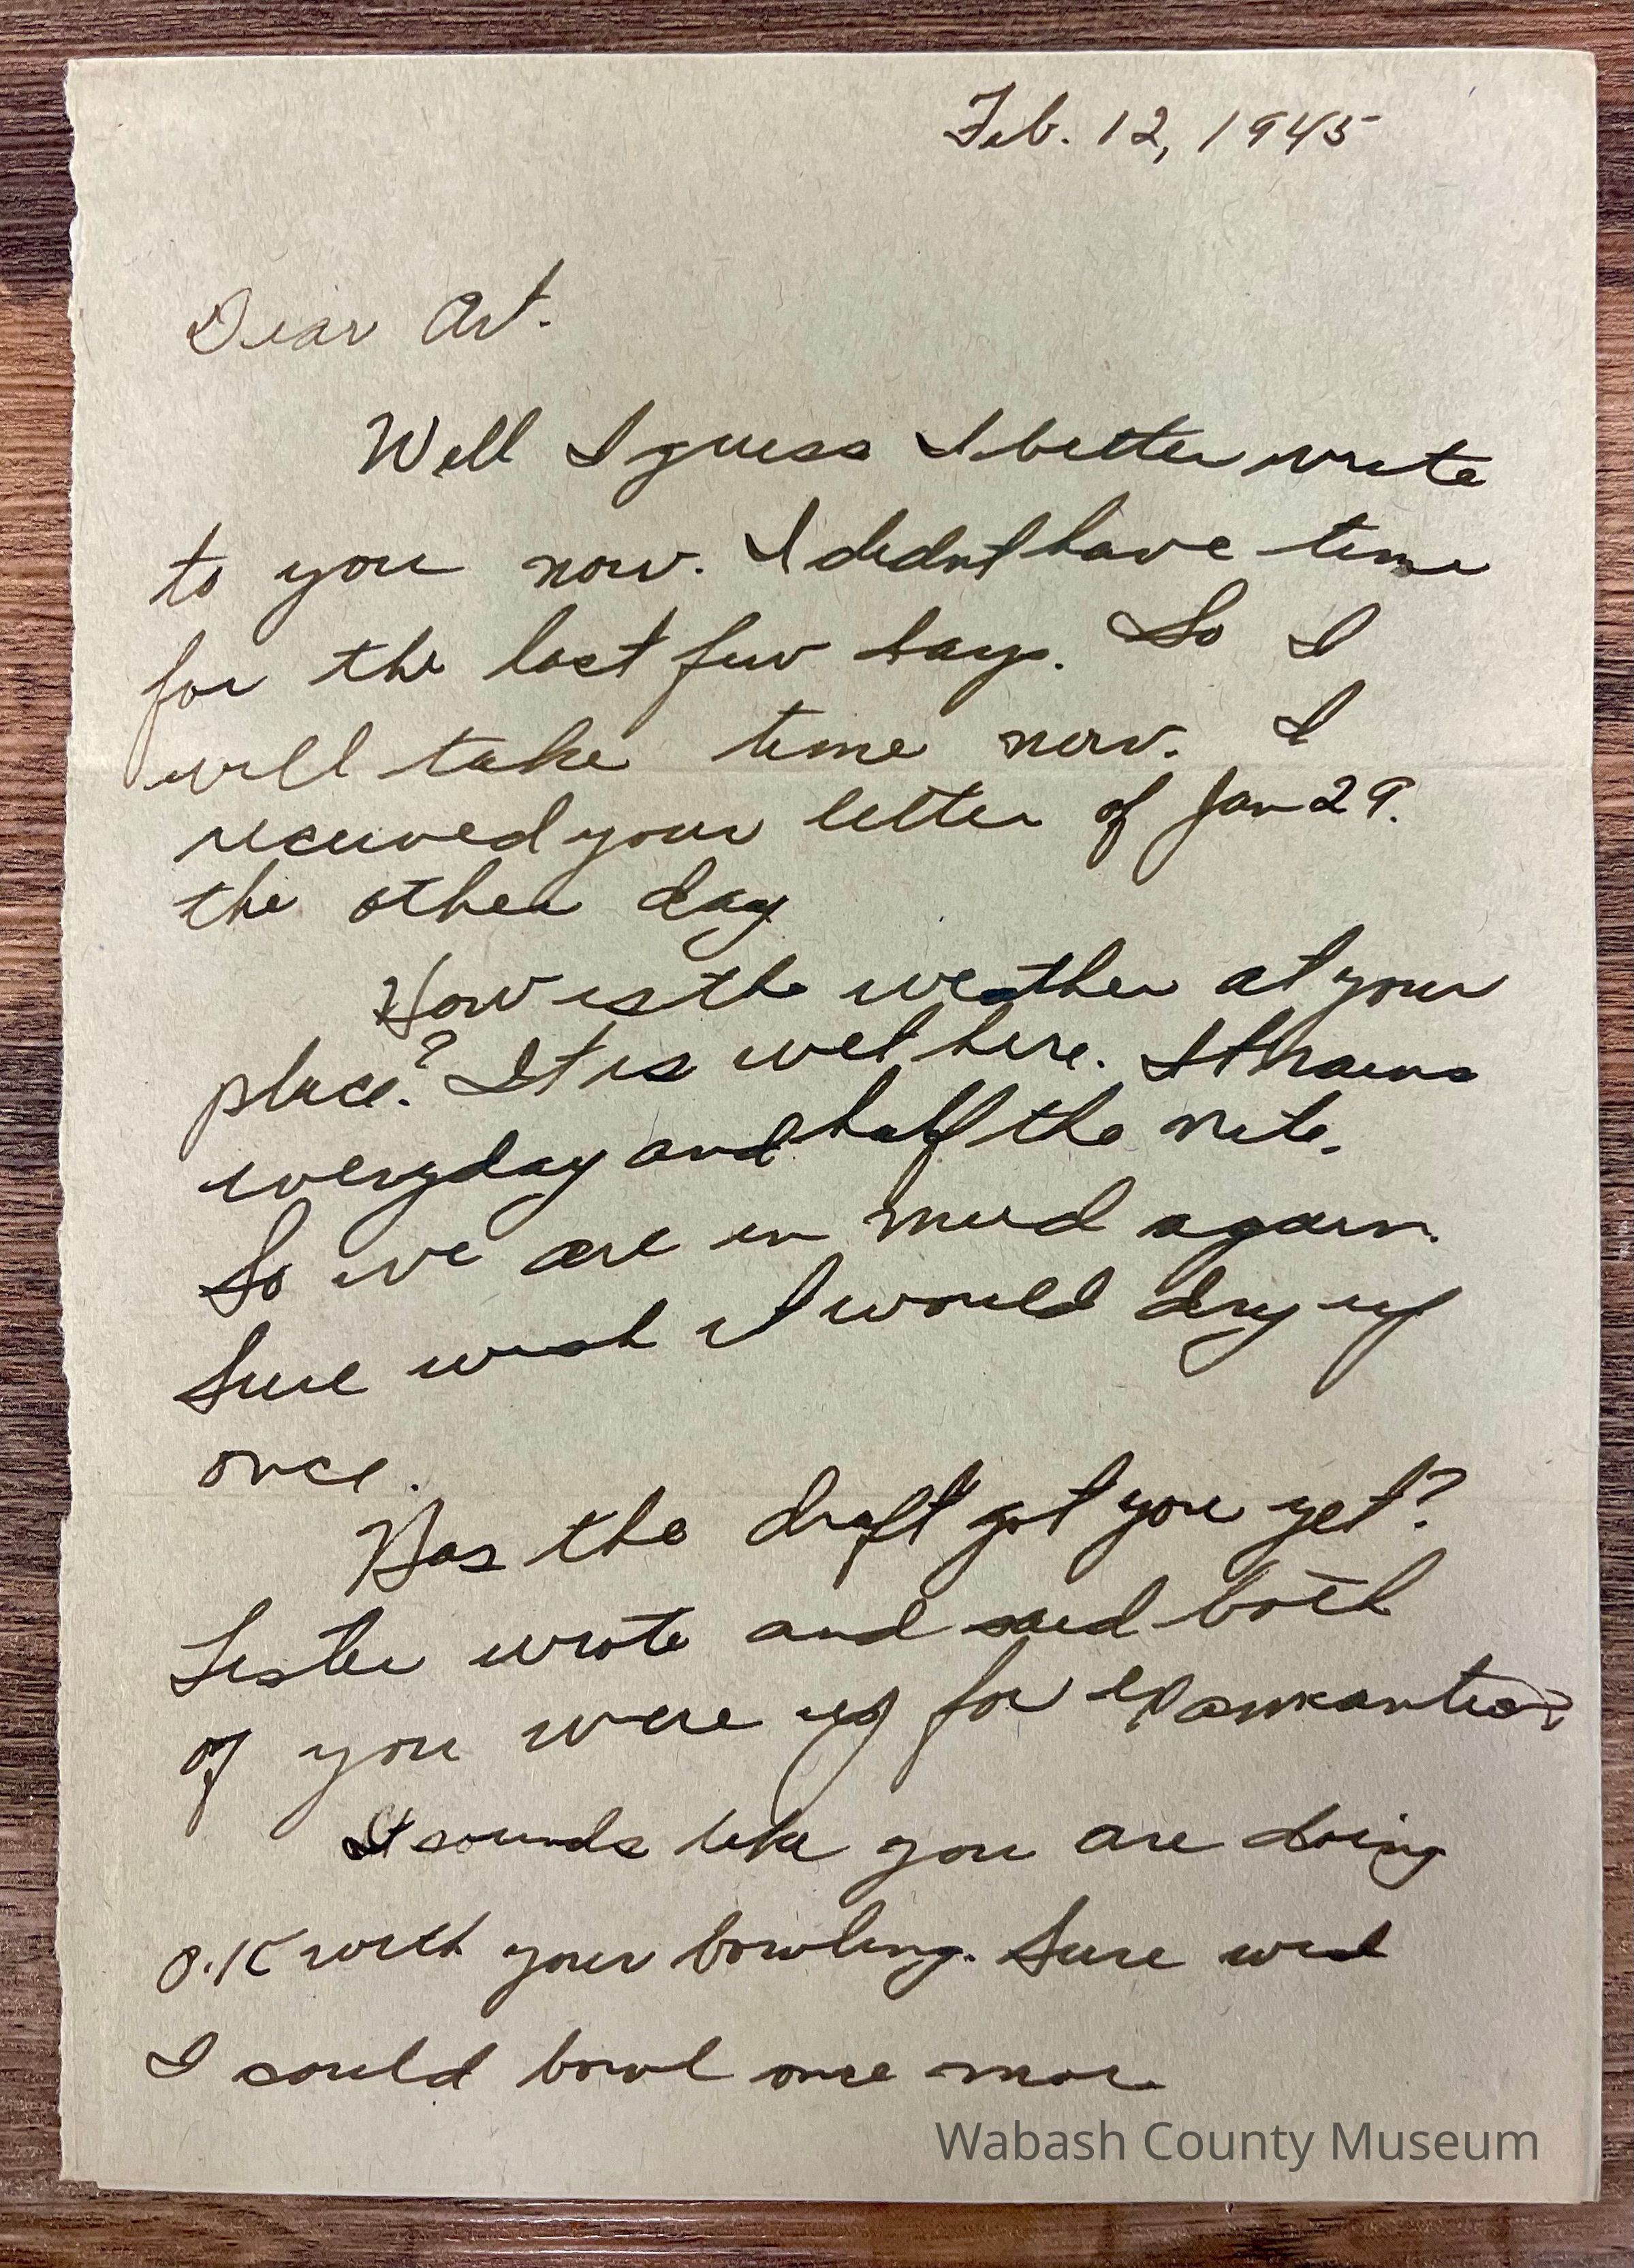 Feb. 12, 1945
Dear Art.
Well I guess I better write
to you now. I didnt have time
for the last few days. So I
will take time now. I
received your letter of Jan 29.
the other day
How is the weather at your
place? It is wet here. It rains
everyday and half the nite.
So we are in mud again.
Sure wish it would dry up
once.
Has the draft got you yet?
Lester wrote and said both
of you were up for
It sounds like you are doing
O.K with your bowling. Sure wish
I could bowl once more
Wabash County Museum